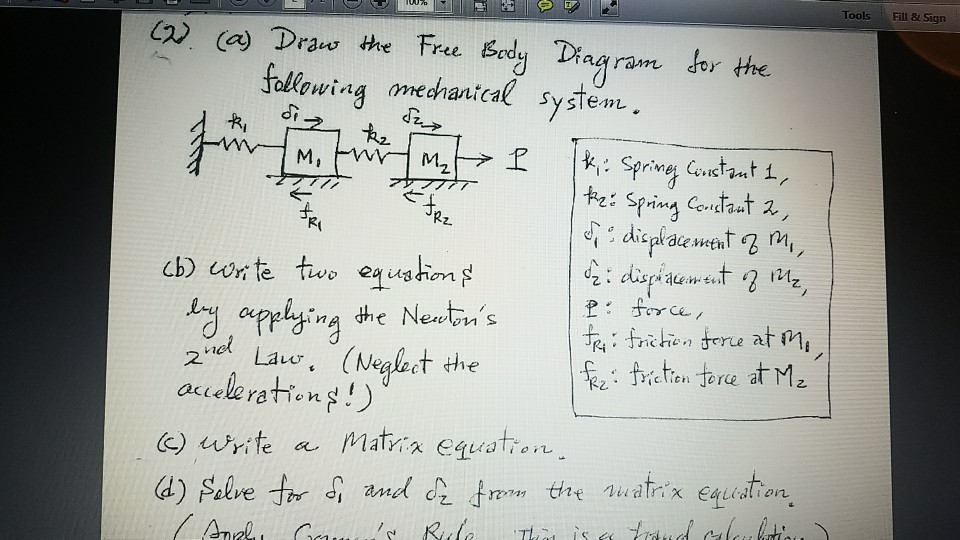 100%
Tools
Fill & Sign
(2). (a) Draw the Free Body Diagram for the
following mechanical system.
k1 δ1 k2 δ2
M1 M2 P
fR1 fR2
k1: Spring Constant 1,
k2: Spring Constant 2,
δ1: displacement of m1,
δ2: displacement of m2,
P: force,
fR1: friction force at M1,
fR2: friction force at M2
(b) Write two equations
by applying the Newton's
2nd Law. (Neglect the
accelerations!)
(c) Write a Matrix equation.
(d) Solve for δ1 and δ2 from the matrix equation.
(Apply Rule This is a hand calculation)